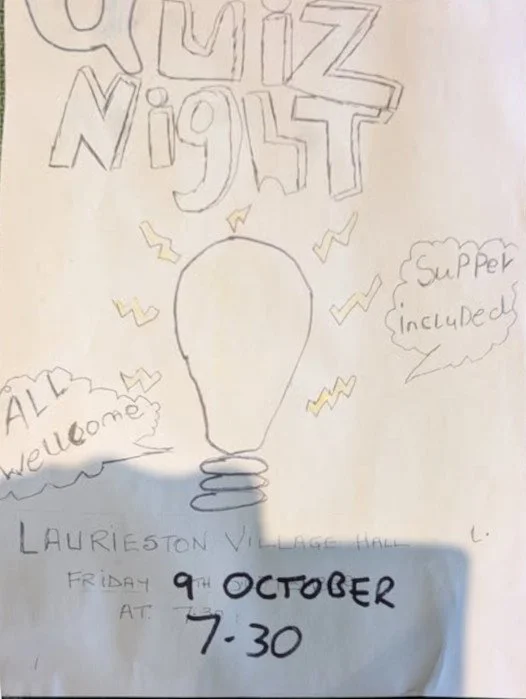 QUiZ
NighT
SuPPer
incLuDed
ALL
wellcome
LAURIESTON VILLAGE HALL
FRIDAY 9TH OCTOBER
AT 7.30
7-30